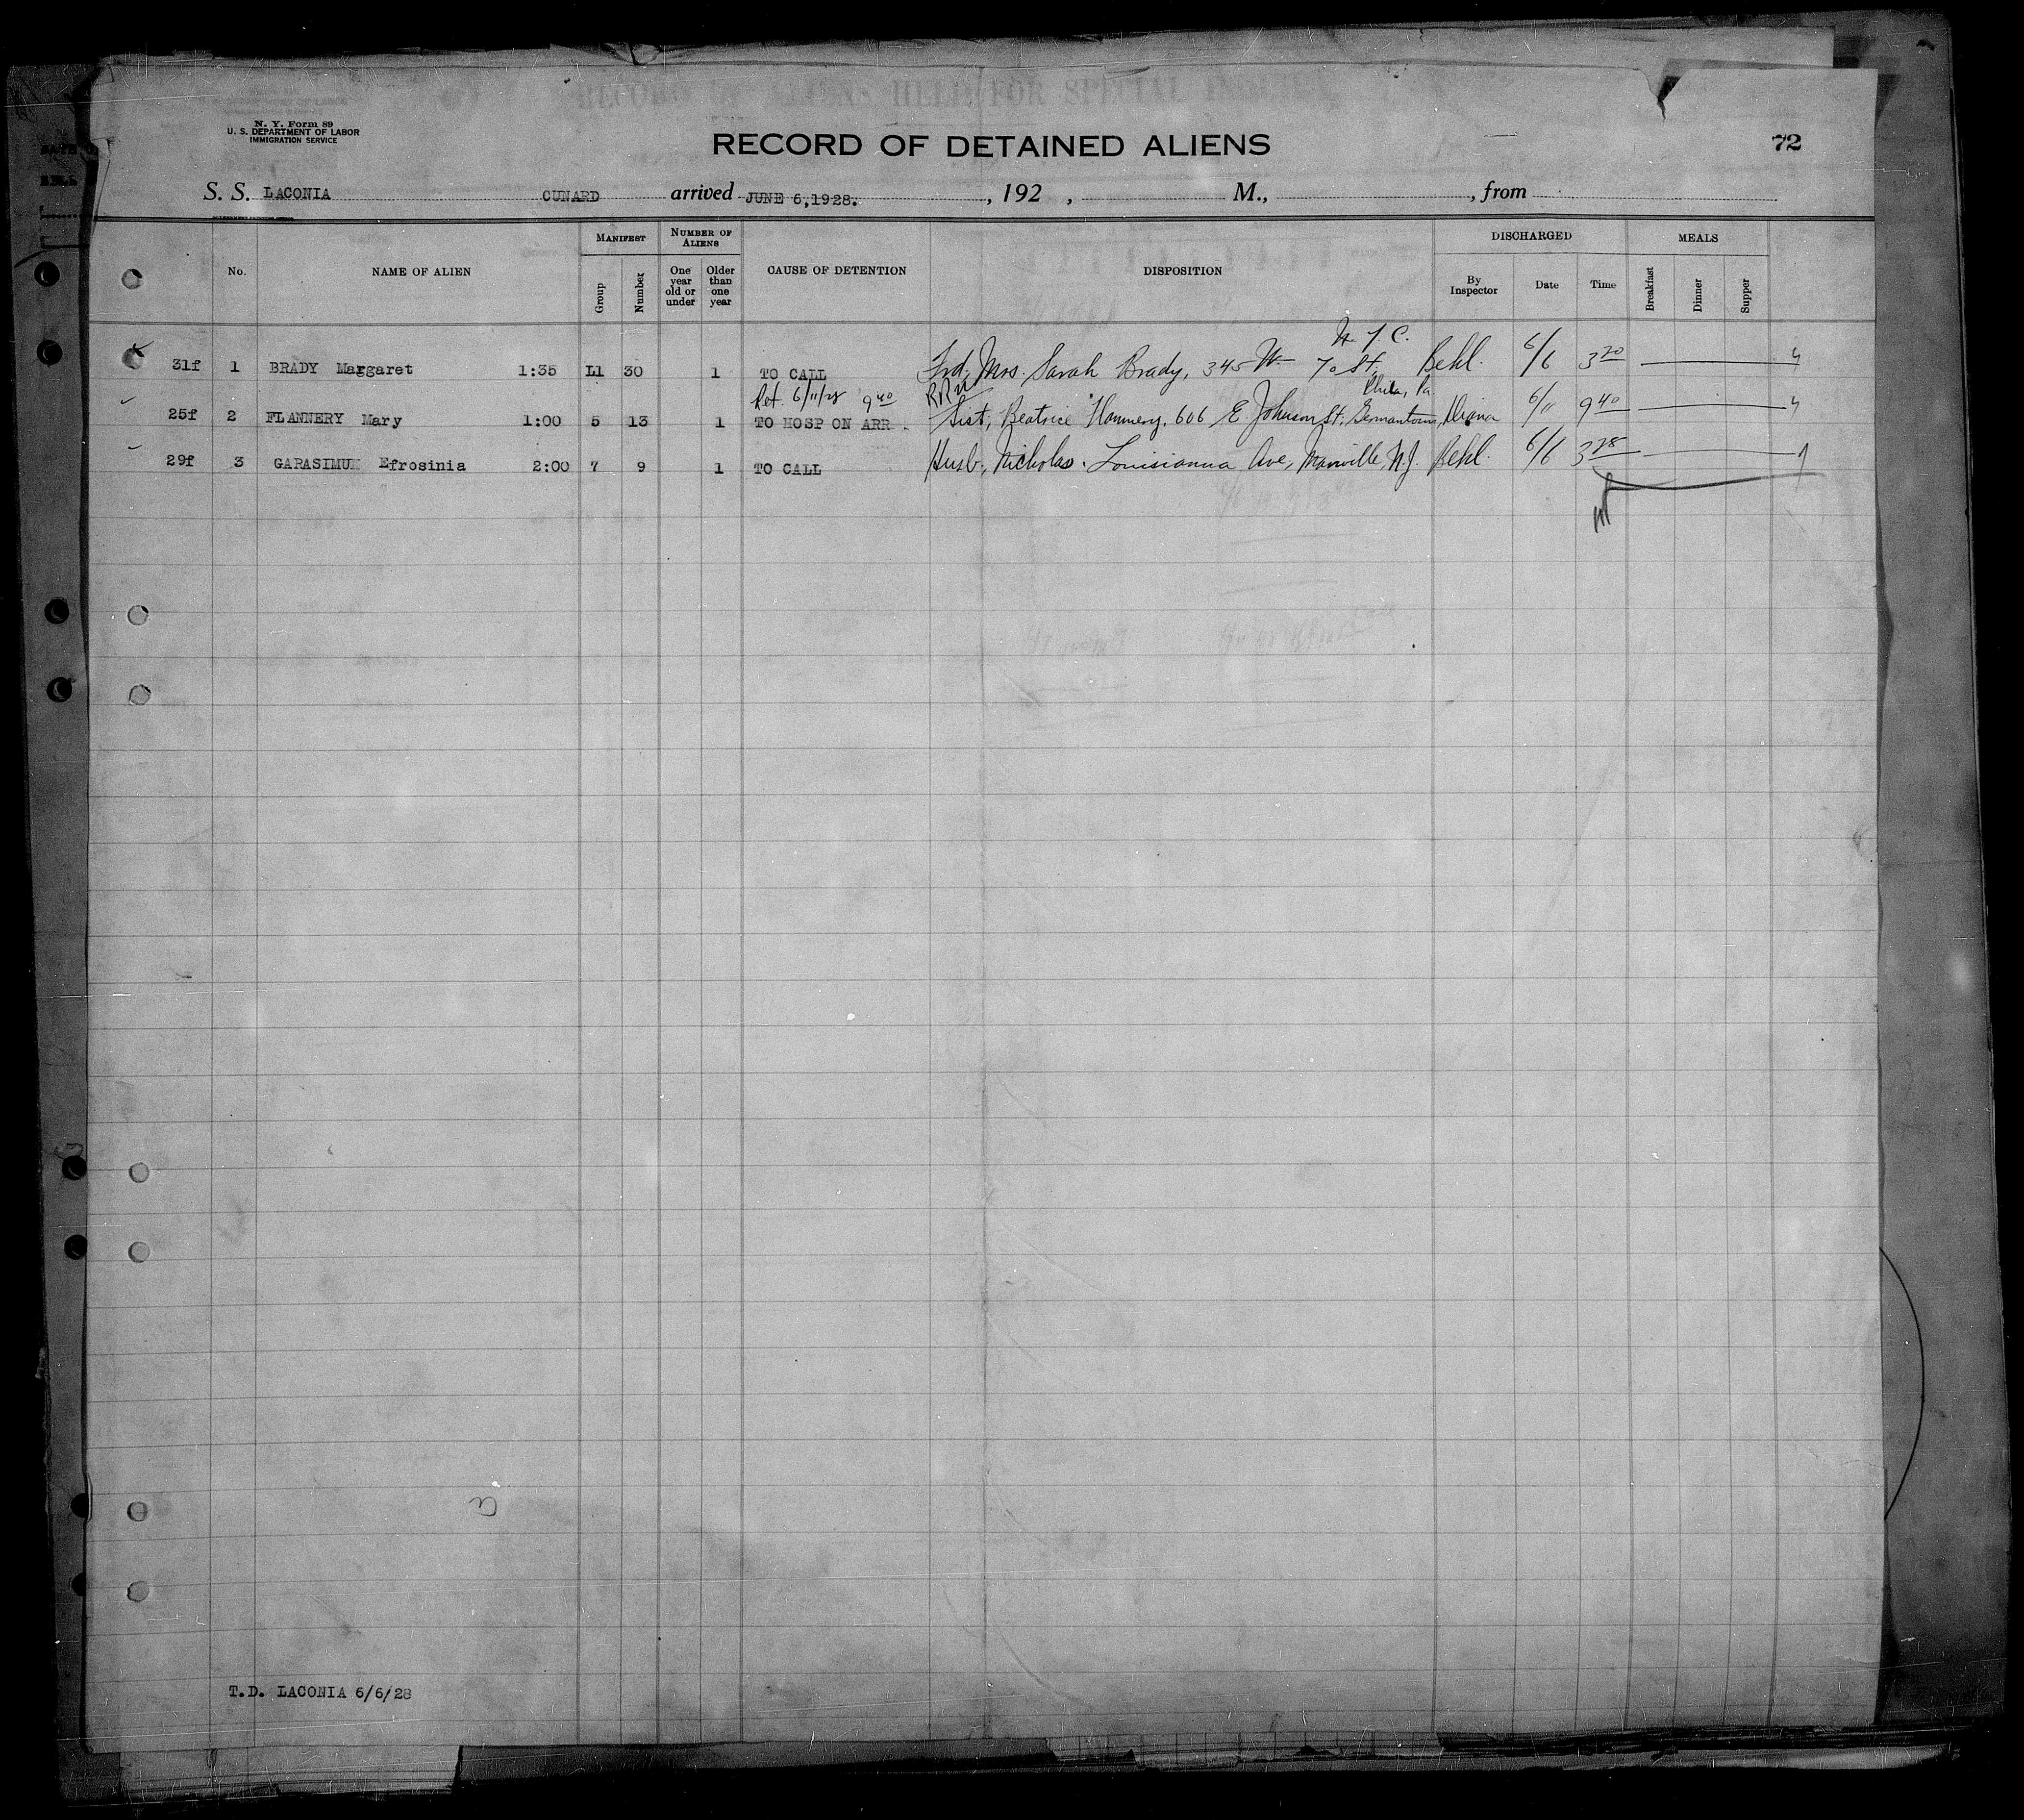 RECORD OF ALIENS HELD FOR SPECIAL INQUIRY
N. Y. Form 89
U. S. DEPARTMENT OF LABOR
IMMIGRATION SERVICE
RECORD OF DETAINED ALIENS
72
S. S. LACONIA CUNARD arrived JUNE 6,1928. , 192 , M., , from
No. NAME OF ALIEN MANIFEST Group Number NUMBER OF ALIENS One year old or under Older than one year CAUSE OF DETENTION DISPOSITION DISCHARGED By Inspector Date Time MEALS Breakfast Dinner Supper
N.Y.C.
31f 1 BRADY Margaret 1:35 L1 30 1 TO CALL Frd, Mrs. Sarah Brady, 345 W 70 St. Behl. 6/6 3 20
Ret. 6/11/28 9 40 Phila, Pa
25f 2 FLANNERY Mary 1:00 5 13 1 TO HOSP ON ARR. Sist, Beatrice Flannery, 606 E Johnson St, Germantown, 6/11 9 40
29f 3 GARASIMUK Efrosinia 2:00 7 9 1 TO CALL Husb, Nicholas. Louisianna Ave, Manville, N.J. Behl. 6/6 3 28
3
T.D. LACONIA 6/6/28